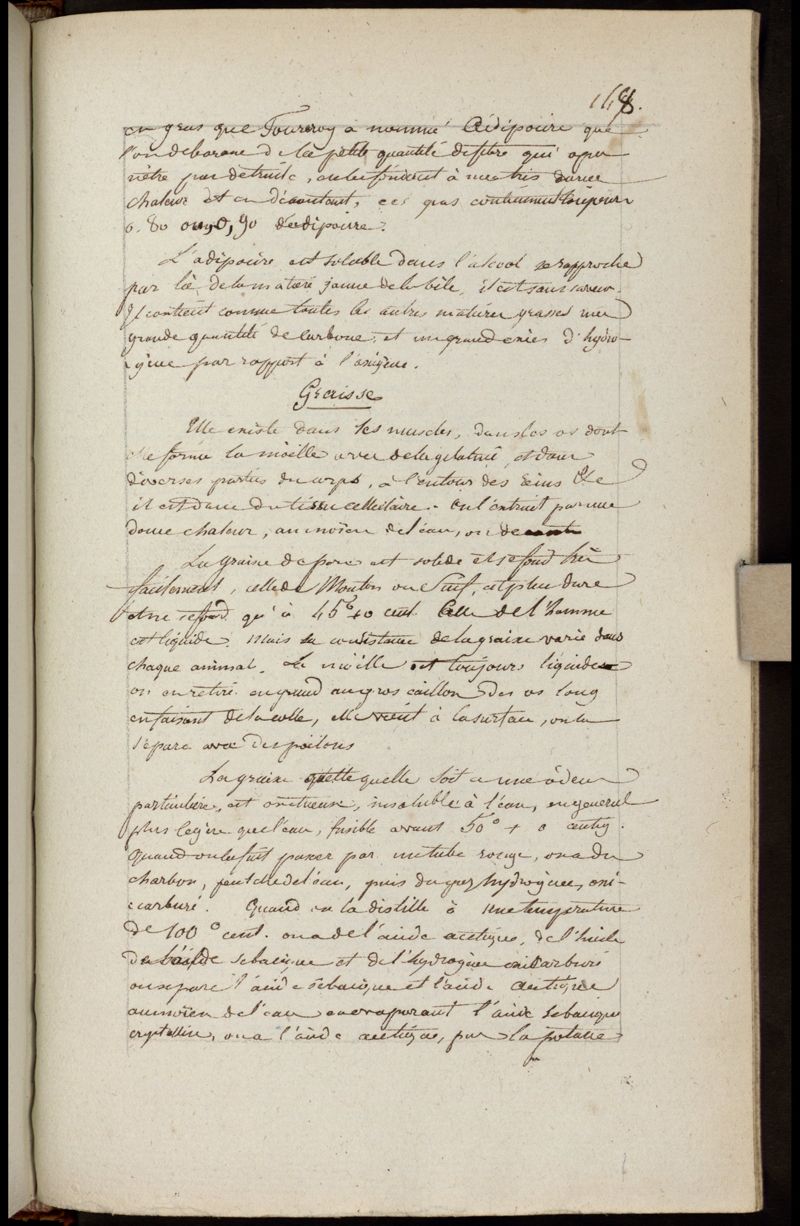 148.
en gras que Fourcroy a nommé Adipocire que
l'on débarasse de la petite quantité de fibre qui a pu
n'être pas détruite, en les fondant à une très douce
chaleur et en décantant, ces gras contiennent toujours
0.80 ou 0,90 d'adipocire.
L'adipocire est soluble dans l'alcool se rapproche
par là de la matière jaune de la bile, il est sans saveur.
Il contient comme toutes les autres matières grasses une
grande quantité de carbone, et un grand excès d'hydro-
gène par rapport à l'oxigène.
Graisse
Elle existe dans les muscles, dans les os dont
elle forme la moëlle avec de la gélatine, et dans
diverses parties du corps, à l'entour des reins &c
il est dans du tissu cellulaire. on l'extrait par une
douce chaleur, au moïen de l'eau, ou de
La graisse de porc est solide et se fond très
facilement, celle de Mouton ou Suif, est plus dure
et ne se fond qu'à 45° + 0 cent. Celle de l'homme
est liquide. mais la consistance de la graisse varie dans
chaque animal. La moëlle est toujours liquide
on en retire en grand au gros caillou des os long
en faisant de la colle, elle vient à la surface, on la
sépare avec des poêlons
La graisse quelle quelle soit a une odeur
particulière, est onctueuse, insoluble à l'eau, en général
plus légère que l'eau, fusible avant 50° + 0 centig.
Quand on la fait passer par un tube rouge, on a du
charbon, peut être de l'eau, puis du gaz hydrogène oxi-
carburé. Quand on la distille à une température
de 100° cent. on a de l'acide acétique, de l'huile
de l'acide sebacique et de l'hydrogène oxicarburé
on sépare l'acide sebacique et l'acide acétique
au moïen de l'eau en évaporant l'acide sebacique
crystallise, on a l'acide acétique, par la potasse